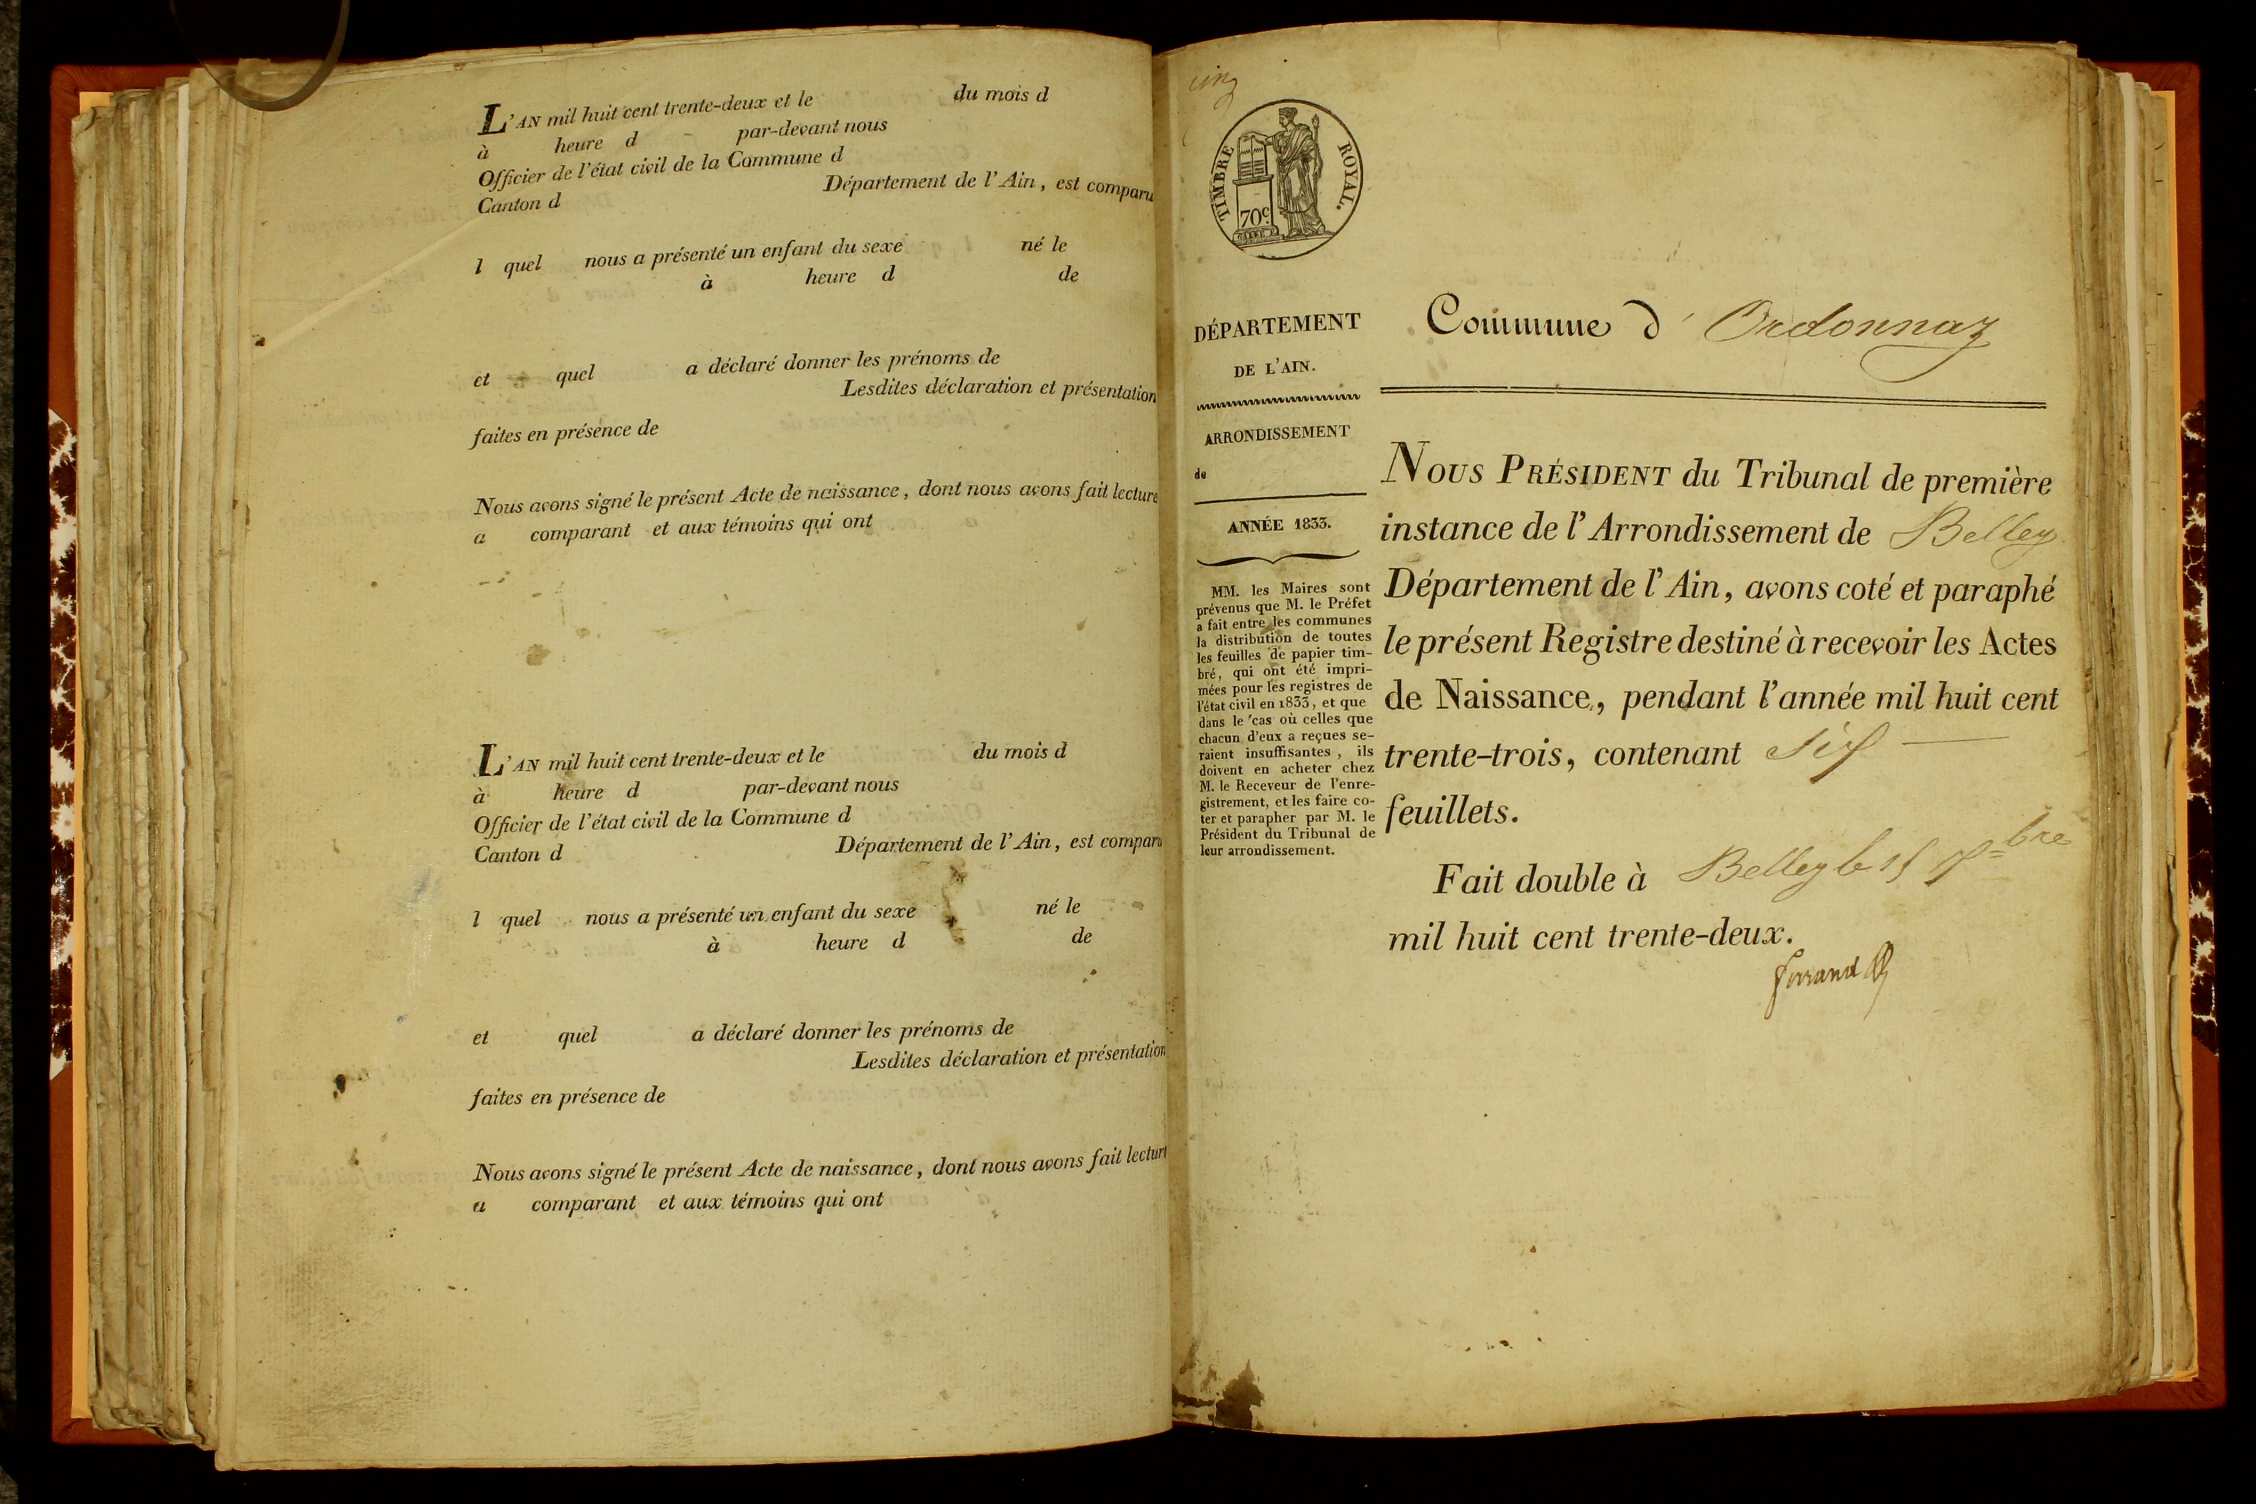 L'AN mil huit cent trente-deux et le du mois d
à heure d par-devant nous
Officier de l'état civil de la Commune d
Canton d Département de l'Ain, est comparu
l quel nous a présenté un enfant du sexe né le
à heure d de
et quel a déclaré donner les prénoms de
Lesdites déclaration et présentation
faites en présence de
Nous avons signé le présent Acte de naissance, dont nous avons fait lecture
a comparant et aux témoins qui ont
L'AN mil huit cent trente-deux et le du mois d
à heure d par-devant nous
Officier de l'état civil de la Commune d
Canton d Département de l'Ain, est comparu
l quel nous a présenté un enfant du sexe né le
à heure d de
et quel a déclaré donner les prénoms de
Lesdites déclaration et présentation
faites en présence de
Nous avons signé le présent Acte de naissance, dont nous avons fait lecture
a comparant et aux témoins qui ont
TIMBRE ROYAL.
70c.
DÉPARTEMENT
DE L'AIN.
ARRONDISSEMENT
de
ANNÉE 1833.
MM. les Maires sont
prévenus que M. le Préfet
a fait entre les communes
la distribution de toutes
les feuilles de papier tim-
bré, qui ont été impri-
mées pour les registres de
l'état civil en 1833, et que
dans le cas où celles que
chacun d'eux a reçues se-
raient insuffisantes, ils
doivent en acheter chez
M. le Receveur de l'enre-
gistrement, et les faire co-
ter et parapher par M. le
Président du Tribunal de
leur arrondissement.
Commune d'Ordonnaz
NOUS PRÉSIDENT du Tribunal de première
instance de l'Arrondissement de Belley
Département de l'Ain, avons coté et paraphé
le présent Registre destiné à recevoir les Actes
de Naissance, pendant l'année mil huit cent
trente-trois, contenant six
feuillets.
Fait double à Belley le 15 bre
mil huit cent trente-deux.